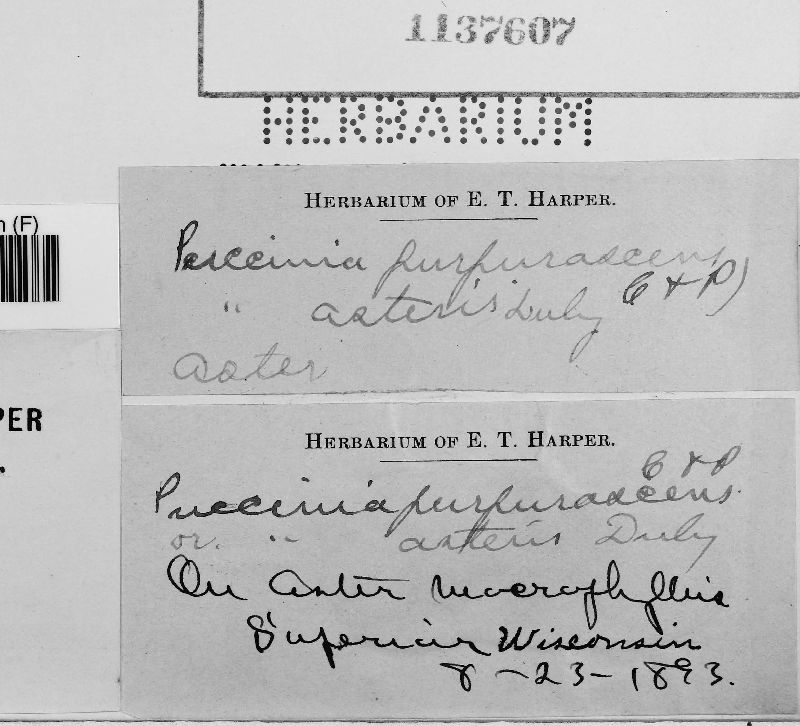 1137607
HERBARIUM
n (F)
HERBARIUM OF E. T. HARPER.
Puccinia purpurascens
C & P)
" asteris Duby
Aster
PER
.
HERBARIUM OF E. T. HARPER.
C & P
Puccinia purpurascens
or. " asteris Duby
On Aster macrophyllus
Superior Wisconsin
8-23-1893.